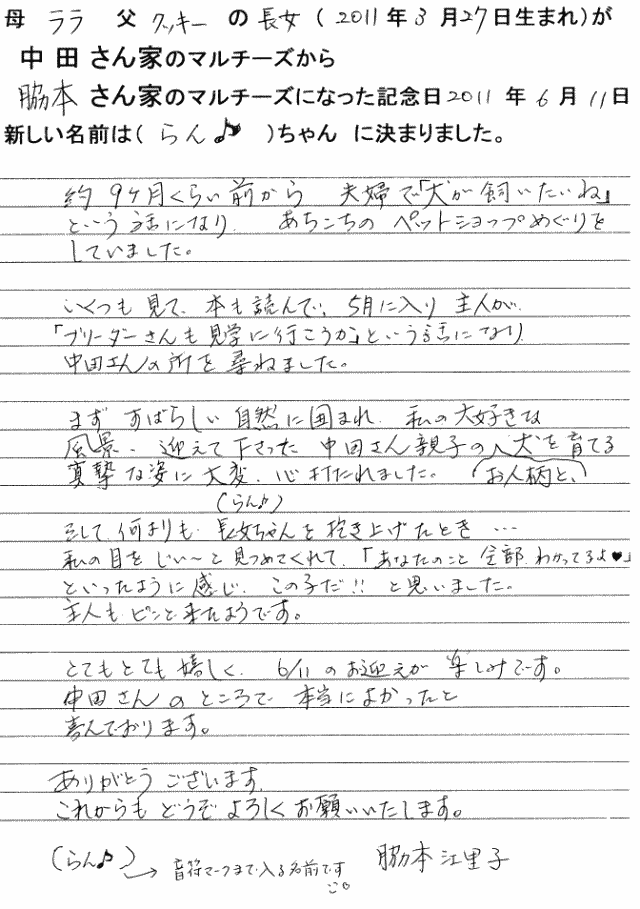 母 ララ 父 クッキー の 長女 ( 2011 年 3 月 27 日生まれ)が
中 田 さん家のマルチーズから
脇本 さん家のマルチーズになった記念日 2011 年 6 月 11 日
新しい名前は( らん♪ )ちゃん に決まりました。
約 9ヶ月くらい前から 夫婦で「犬が飼いたいね」
という話になり、 あちこちの ペットショップめぐりを
していました。
いくつも見て、本も読んで、5月に入り 主人が、
「ブリーダーさんも見学に行こうか」という話になり、
中田さんの所を尋ねました。
まず すばらしい 自然に囲まれ、私の大好きな
風景。迎えて下さった 中田さん親子の お人柄と、犬を育てる
真摯な姿に大変、心打たれました。
そして、何よりも、長女ちゃん(らん♪)を抱き上げたとき…
私の目を じい〜と見つめてくれて、「あなたのこと 全部 わかってるよ♥」
といったように感じ、この子だ!! と思いました。
主人も ピンと来たようです。
とてもとても 嬉しく、6/11 のお迎えが 楽しみです。
中田さん のところで 本当によかったと
喜んでおります。
ありがとう ございます。
これからも どうぞ よろしく お願いいたします。
(らん♪) → 音符マークまで入る名前です 脇本 江里子